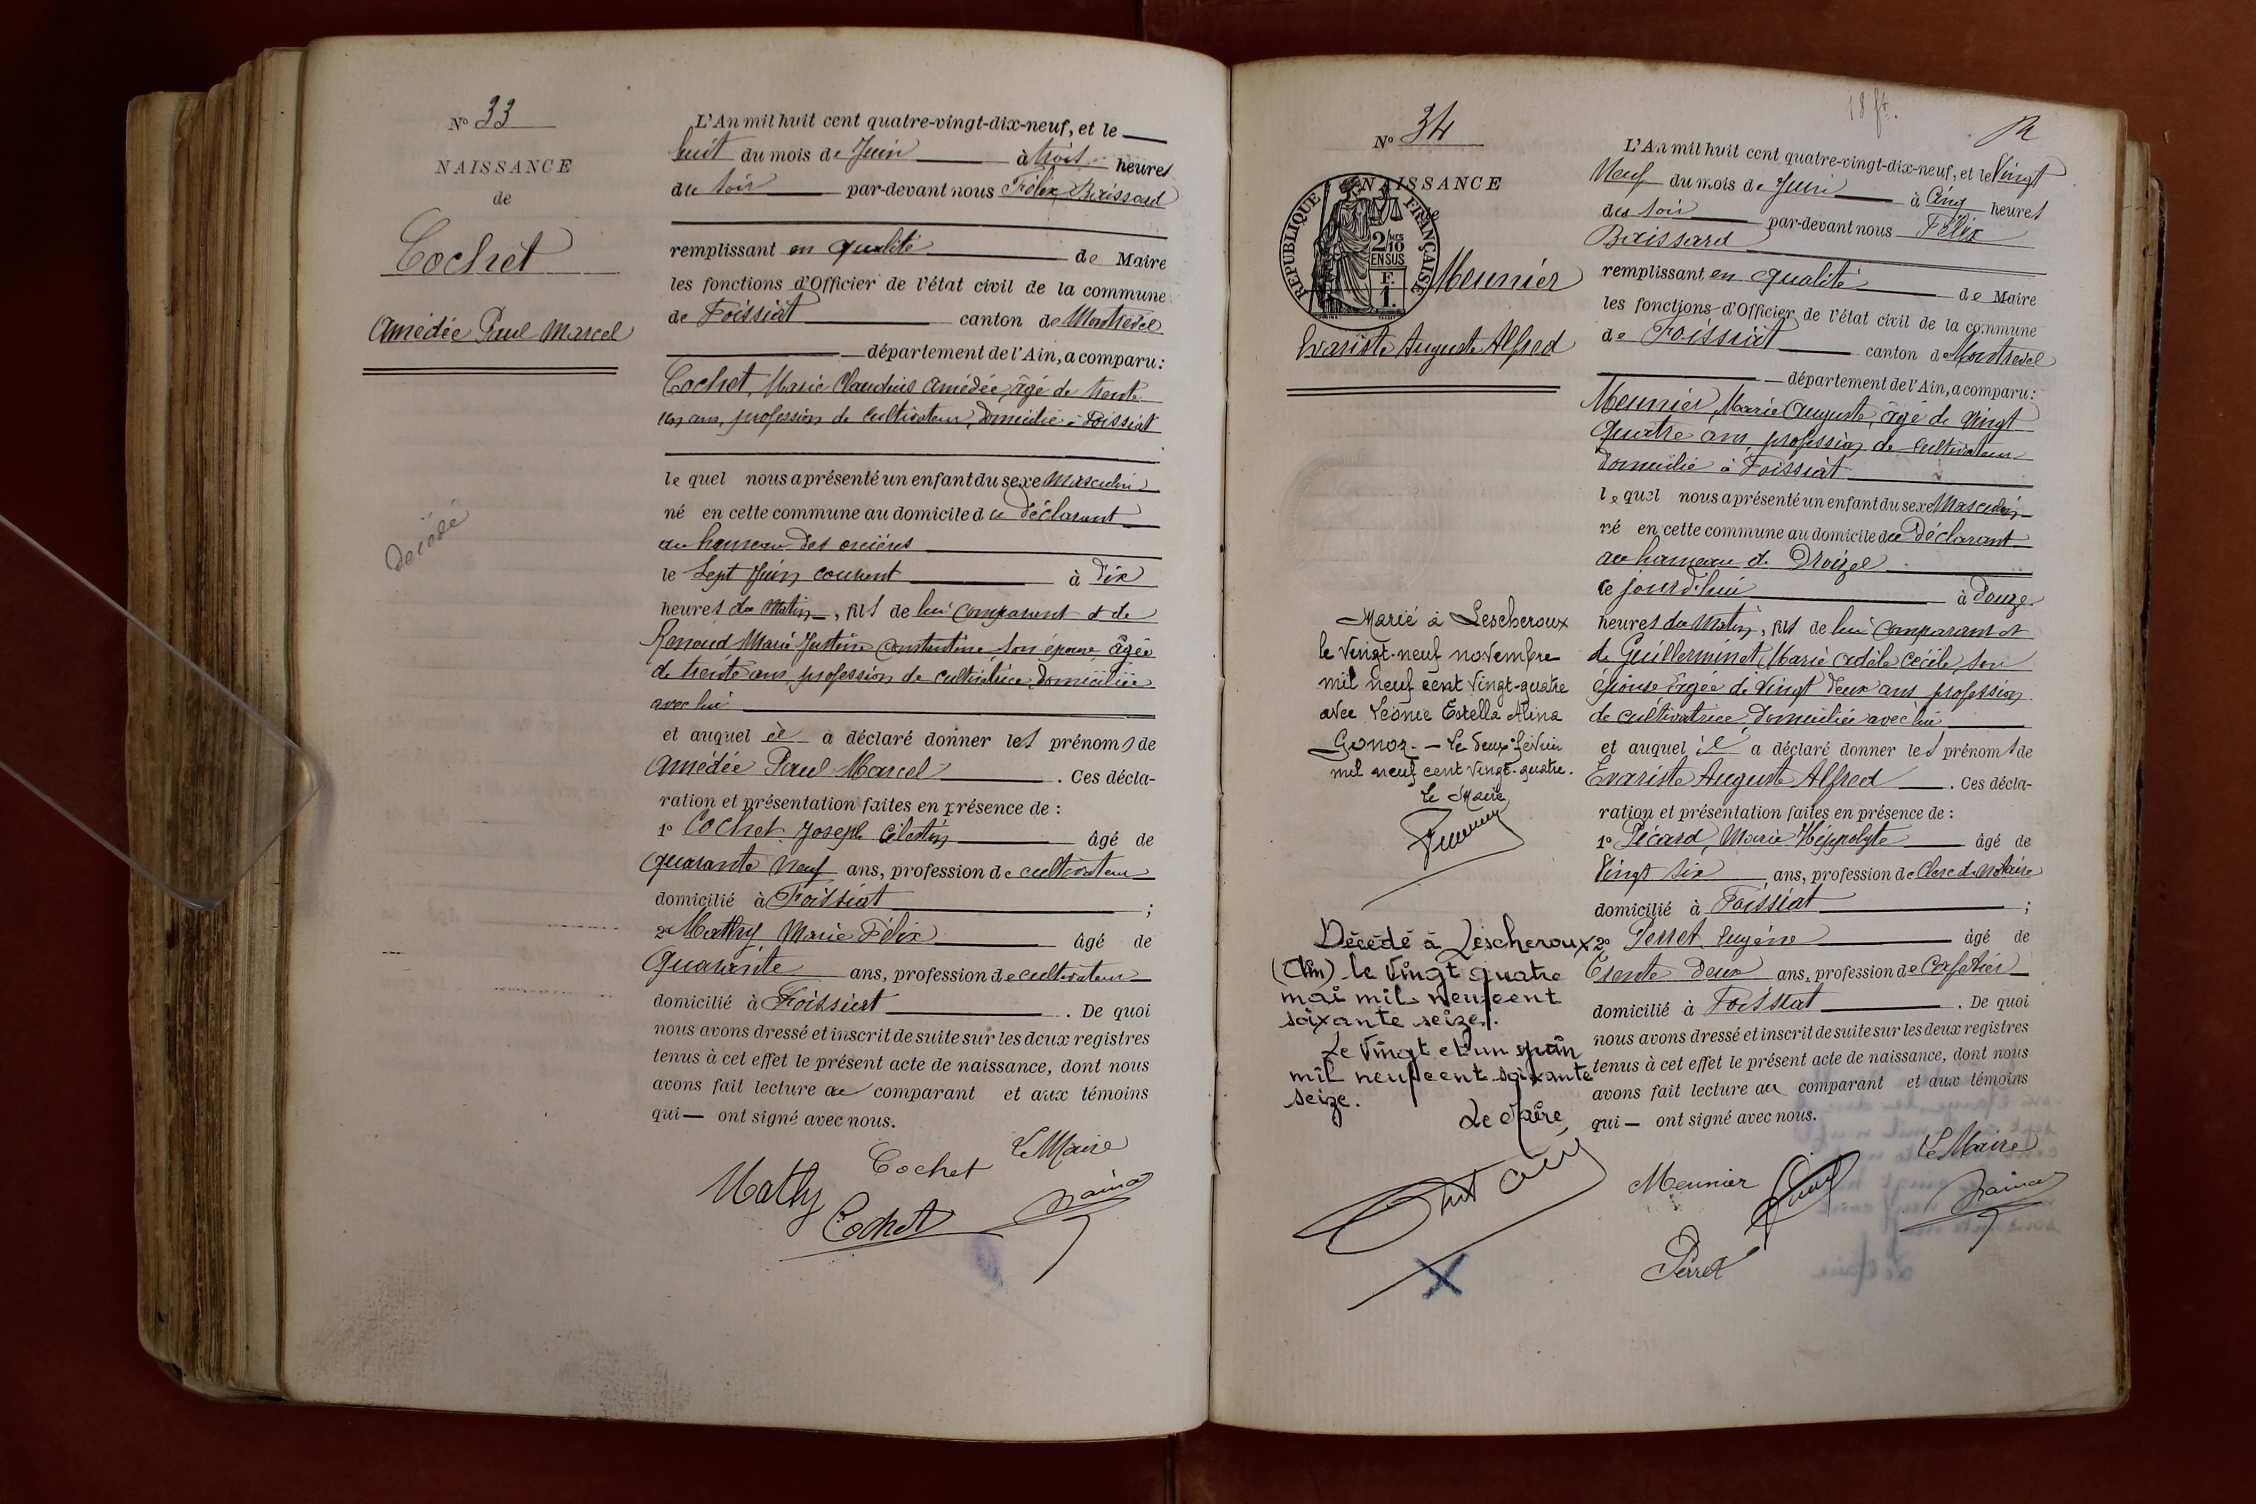 N° 33
NAISSANCE
de
Cochet
Amédée Paul Marcel
Décédé
L'An mil huit cent quatre-vingt-dix-neuf, et le
huit du mois de Juin à trois heures
du soir par-devant nous Félix
remplissant en qualité de Maire
les fonctions d'Officier de l'état civil de la commune
de Foissiat canton de Montrevel
département de l'Ain, a comparu :
Cochet, Marie Claudius Amédée, âgé de trente
un ans, profession de cultivateur, domicilié à Foissiat
le quel nous a présenté un enfant du sexe Masculin
né en cette commune au domicile du déclarant
au hameau des
le sept Juin courant à dix
heures du matin, fils de lui comparant et de
Renoud Marie Justine Constantine son épouse âgée
de trente ans, profession de cultivatrice, domiciliée
avec lui
et auquel il a déclaré donner les prénoms de
Amédée Paul Marcel. Ces décla-
ration et présentation faites en présence de :
1° Cochet Joseph Célestin âgé de
quarante neuf ans, profession de cultivateur
domicilié à Foissiat ;
2° Mathy Marie Félix âgé de
Quarante ans, profession de cultivateur
domicilié à Foissiat. De quoi
nous avons dressé et inscrit de suite sur les deux registres
tenus à cet effet le présent acte de naissance, dont nous
avons fait lecture au comparant et aux témoins
qui — ont signé avec nous.
Le Maire
Cochet
Mathy
Cochet
N° 34
NAISSANCE
RÉPUBLIQUE FRANÇAISE
2/10
EN SUS
F.
1.
Meunier
Evariste Auguste Alfred
Marié à Lescheroux
le vingt-neuf novembre
mil neuf cent vingt-quatre
avec Léonie Estella Alina
Gonoz. — Le deux
mil neuf cent vingt-quatre.
Le Maire
Décédé à Lescheroux
(Ain) le vingt quatre
mai mil neuf cent
soixante seize.
Le vingt et un juin
mil neuf cent soixante
seize.
Le Maire,
18 ft.
L'An mil huit cent quatre-vingt-dix-neuf, et le Vingt
Neuf du mois de Juin à Cinq heures
du soir par-devant nous Félix
remplissant en qualité de Maire
les fonctions d'Officier de l'état civil de la commune
de Foissiat canton de Montrevel
département de l'Ain, a comparu :
Meunier, Marie Auguste, âgé de vingt
quatre ans, profession de cultivateur
domicilié à Foissiat
le quel nous a présenté un enfant du sexe Masculin
né en cette commune au domicile du déclarant
au hameau de
ce jourd'hui à douze
heures du matin, fils de lui comparant et
de Guillerminet, Marie Adèle Cécile son
épouse âgée de vingt deux ans profession
de cultivatrice, domiciliée avec lui
et auquel il a déclaré donner les prénoms de
Evariste Auguste Alfred. Ces décla-
ration et présentation faites en présence de :
1° Picard, Marie Hippolyte âgé de
Vingt six ans, profession de Clerc de Notaire
domicilié à Foissiat ;
2° Perret Eugène âgé de
Trente deux ans, profession de Cafetier
domicilié à Foissiat. De quoi
nous avons dressé et inscrit de suite sur les deux registres
tenus à cet effet le présent acte de naissance, dont nous
avons fait lecture au comparant et aux témoins
qui — ont signé avec nous.
Le Maire
Meunier
Perret